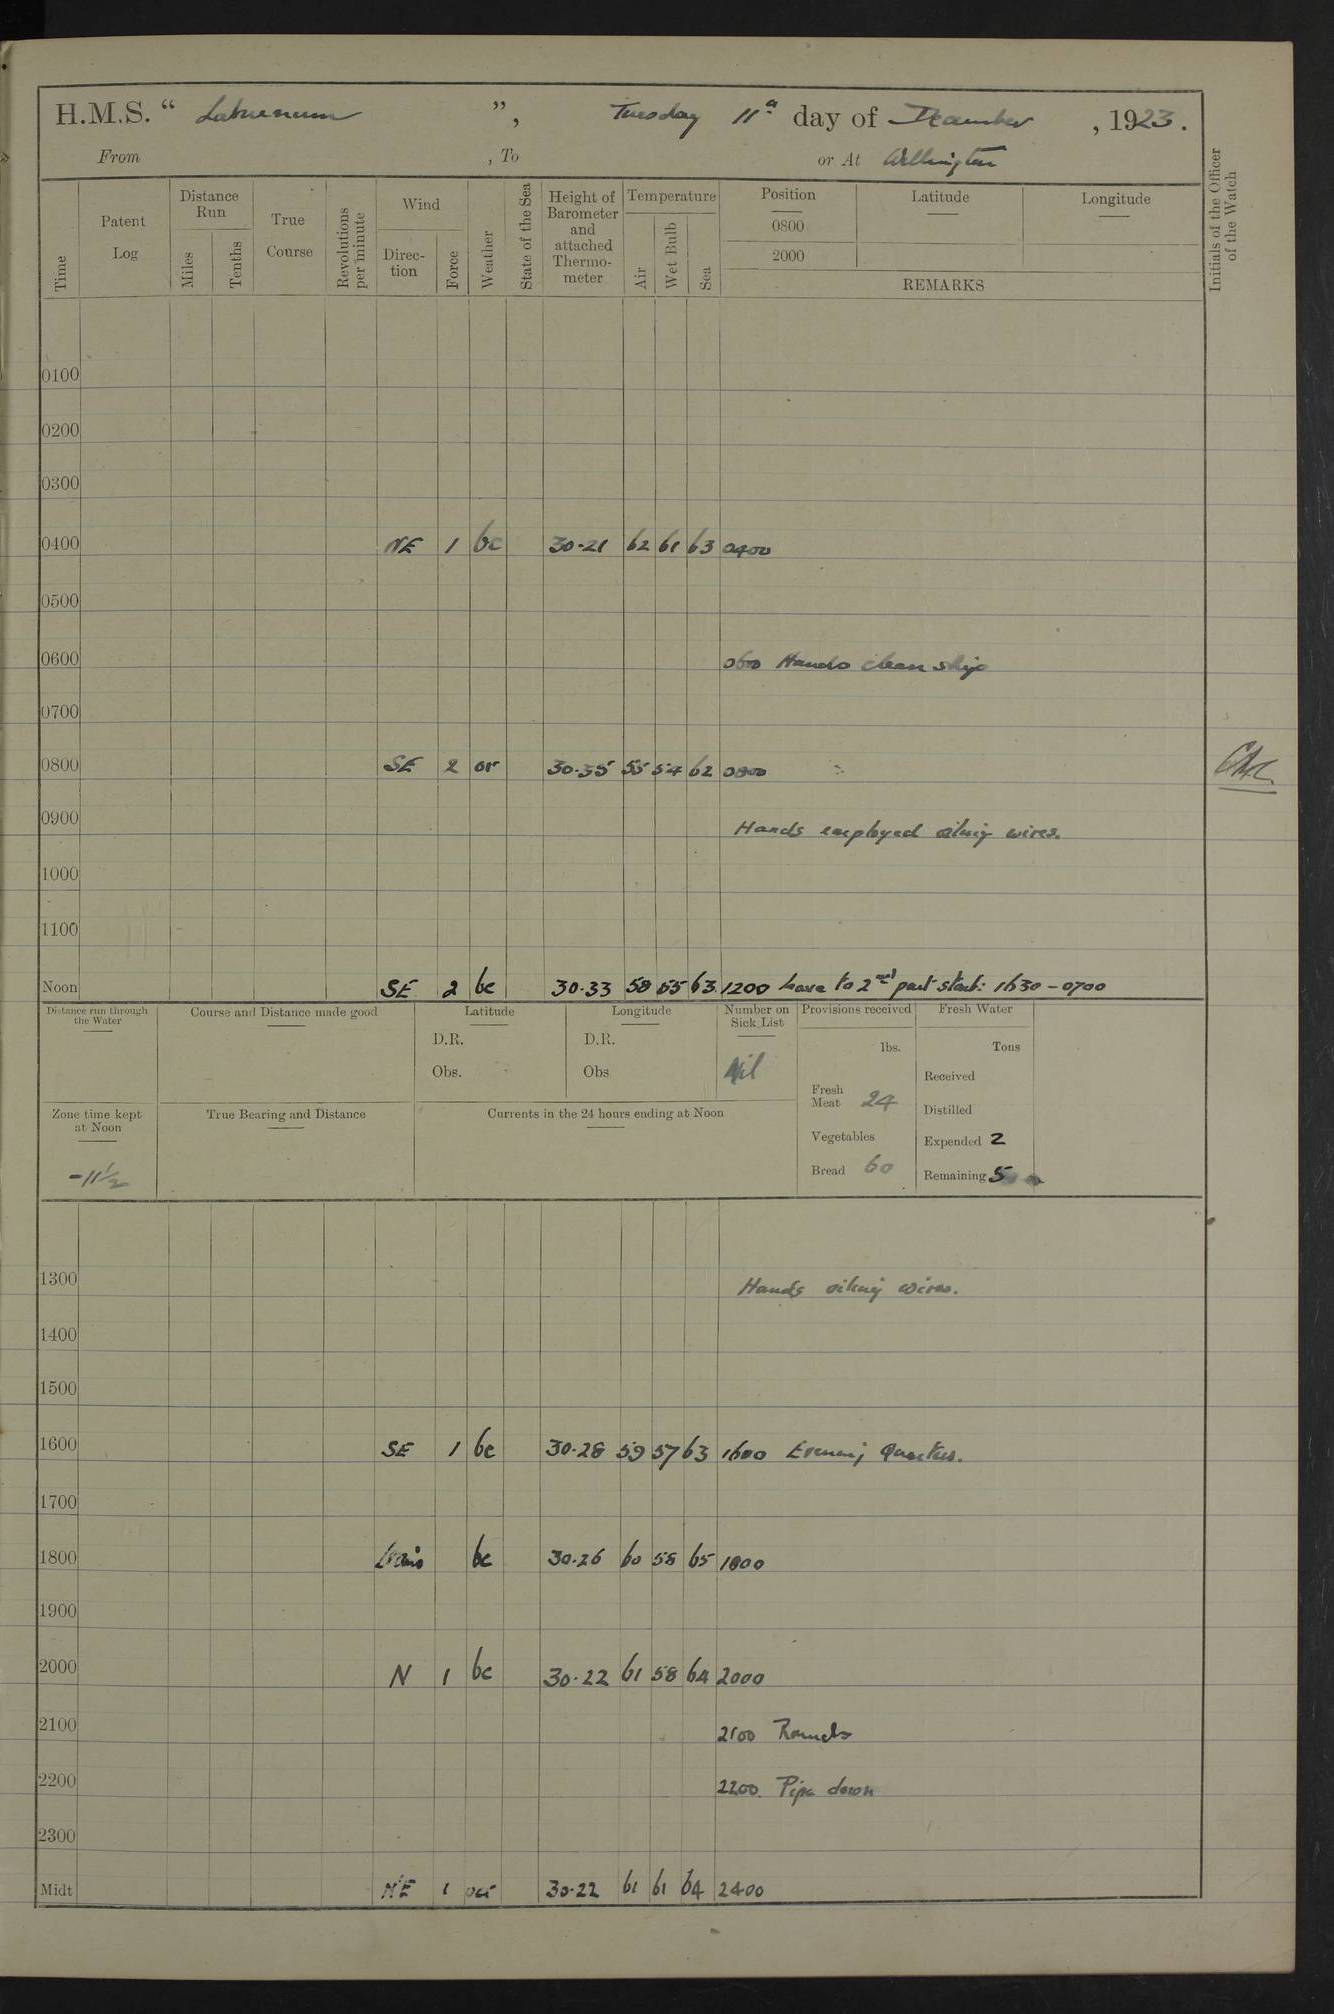 H.M.S. “ Laburnum ”, Tuesday 11th day of December, 1923.
From , To or At Wellington
Time
Patent Log
Distance Run
Miles
Tenths
True Course
Revolutions per minute
Wind
Direc-tion
Force
Weather
State of the Sea
Height of Barometer and attached Thermo-meter
Temperature
Air
Wet Bulb
Sea
Position
0800
2000
Latitude
Longitude
REMARKS
Initials of the Officer of the Watch
0100
0200
0300
0400 NE 1 bc 30·21 62 61 63 0400
0500
0600 0600 Hands clean ship
0700
0800 SE 2 or 30·35 55 54 62 0800
0900 Hands employed oiling wires.
1000
1100
Noon SE 2 bc 30·33 58 55 63 1200 Leave to 2nd part starb: 1630 - 0700
Distance run through the Water
Course and Distance made good
Latitude
D.R.
Obs.
Longitude
D.R.
Obs
Number on Sick List
Nil
Provisions received
lbs.
Fresh Meat 24
Vegetables
Bread 60
Fresh Water
Tons
Received
Distilled
Expended 2
Remaining 5
Zone time kept at Noon
-11½
True Bearing and Distance
Currents in the 24 hours ending at Noon
1300 Hands oiling wires.
1400
1500
1600 SE 1 bc 30·28 59 57 63 1600 Evening Quarters.
1700
1800 bc 30·26 60 58 65 1800
1900
2000 N 1 bc 30·22 61 58 64 2000
2100 2100 Rounds
2200 2200. Pipe down
2300
Midt NE 1 30·22 61 61 64 2400